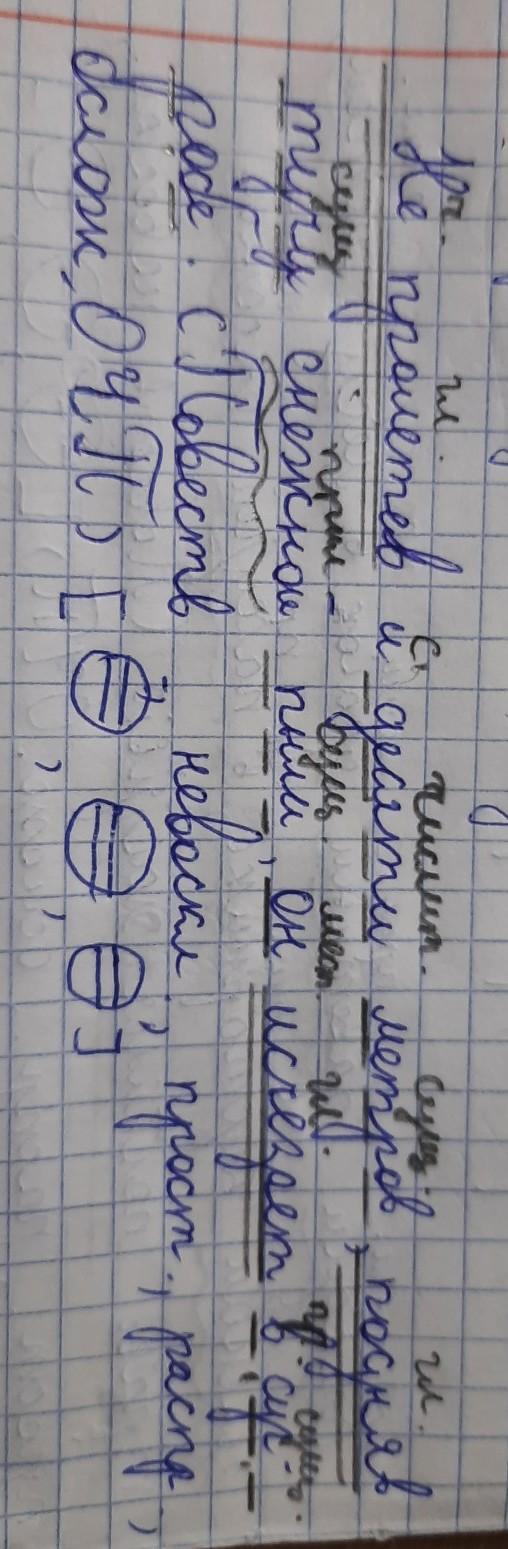 Нч. гл. с. числит. сущ. гл.
Не пролетев и десяти метров, подняв
сущ прил- сущ. мест. гл. пр. сущ.
тучу снежной пыли, он исчезает в суг-
робе. (Повеств невоскл, прост., распр,
ослож, ОЧП) [ , , ]